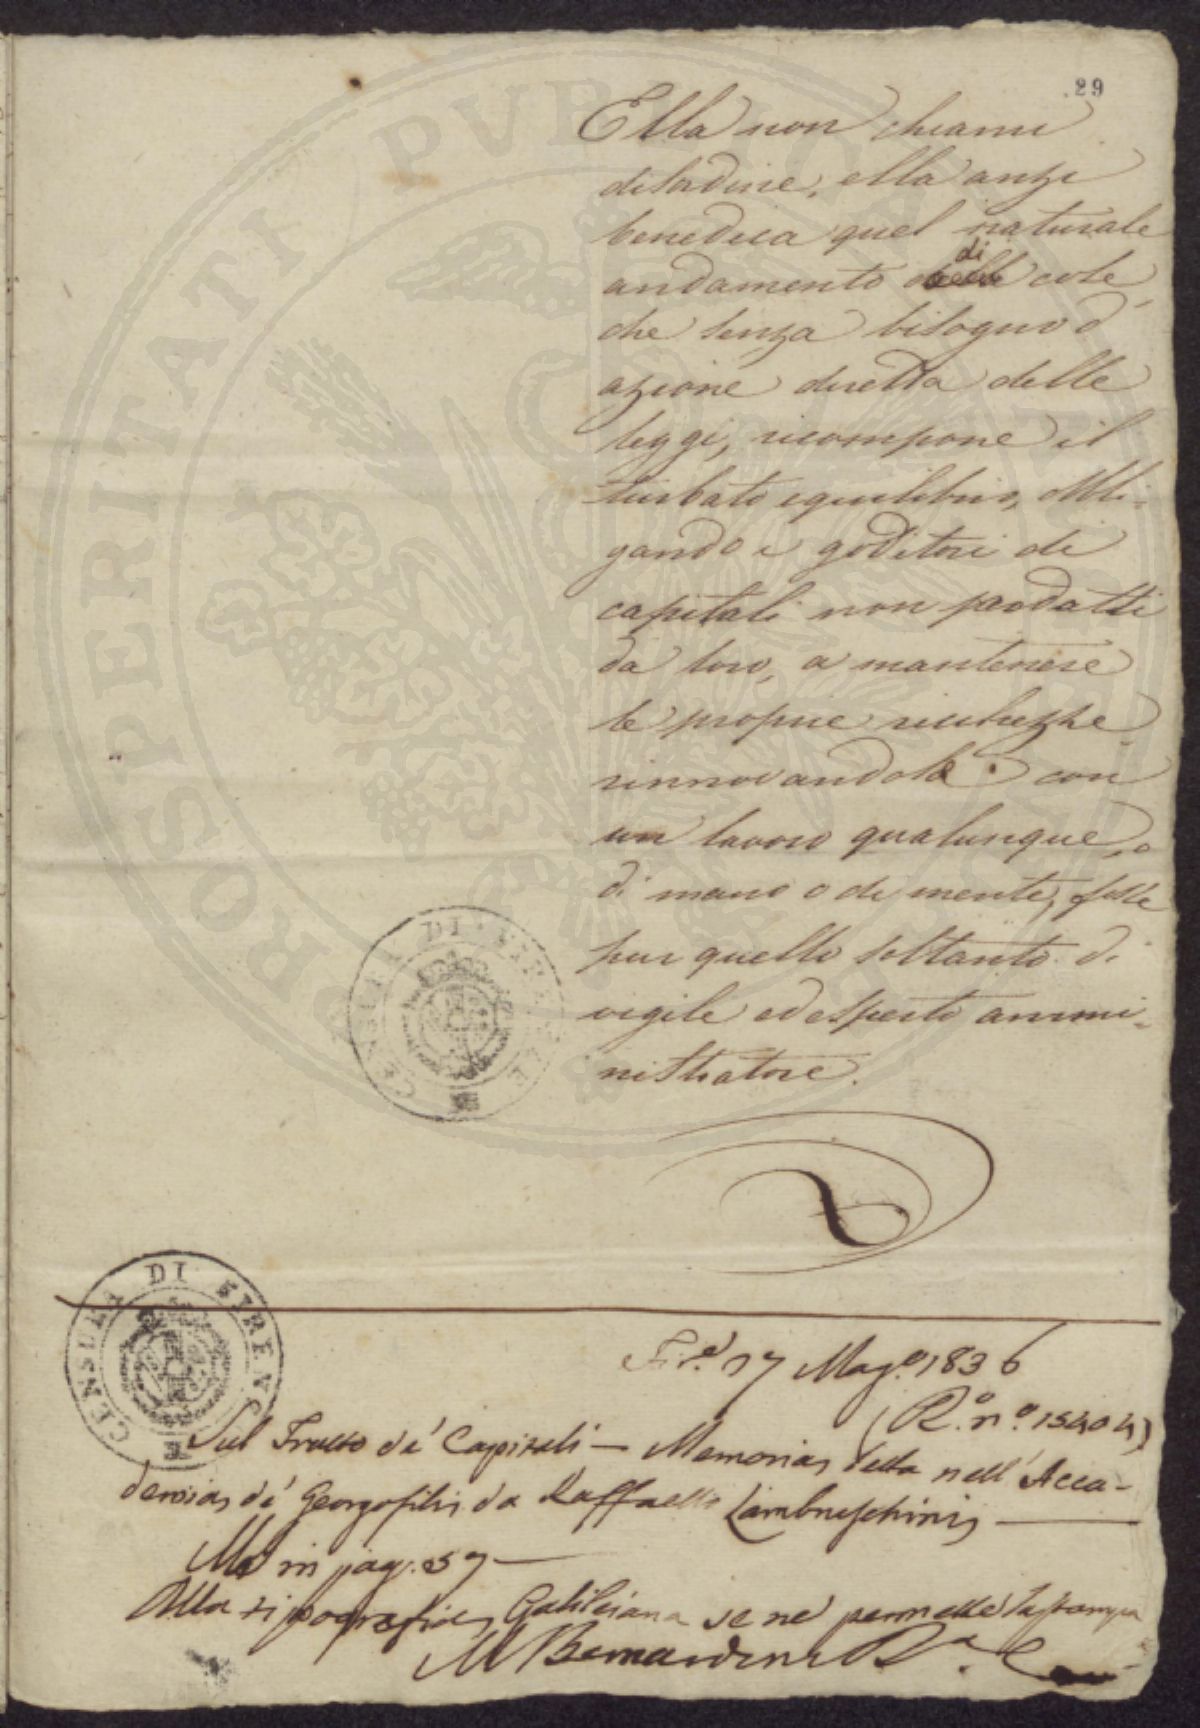 29
Ella non chiami
disordine, ella anzi
benedica quel naturale
andamento di cose,
che senza bisogno d'
azione diretta delle
leggi, ricompone il
turbato equilibrio, obbli-
gando i goditori di
capitali non prodotti
da loro, a mantenere
le proprie ricchezze
rinnovandole con
un lavoro qualunque, o
di mano o di mente, fosse
pur quello soltanto di
vigile ed esperto ammi-
nistratore.
CENSURA DI FIRENZE
CENSURA DI FIRENZE
PROSPERITATI PUBLICAE
Fir.e 17 Mag.o 1836
(R.o n.o 15404)
Sul Frutto de' Capitali — Memoria letta nell' Acca-
demia de' Georgofili da Raffaello Lambruschini —
Ms in pag. 57 —
Alla tipografia Galileiana se ne permette la stampa
M Bernardini R.